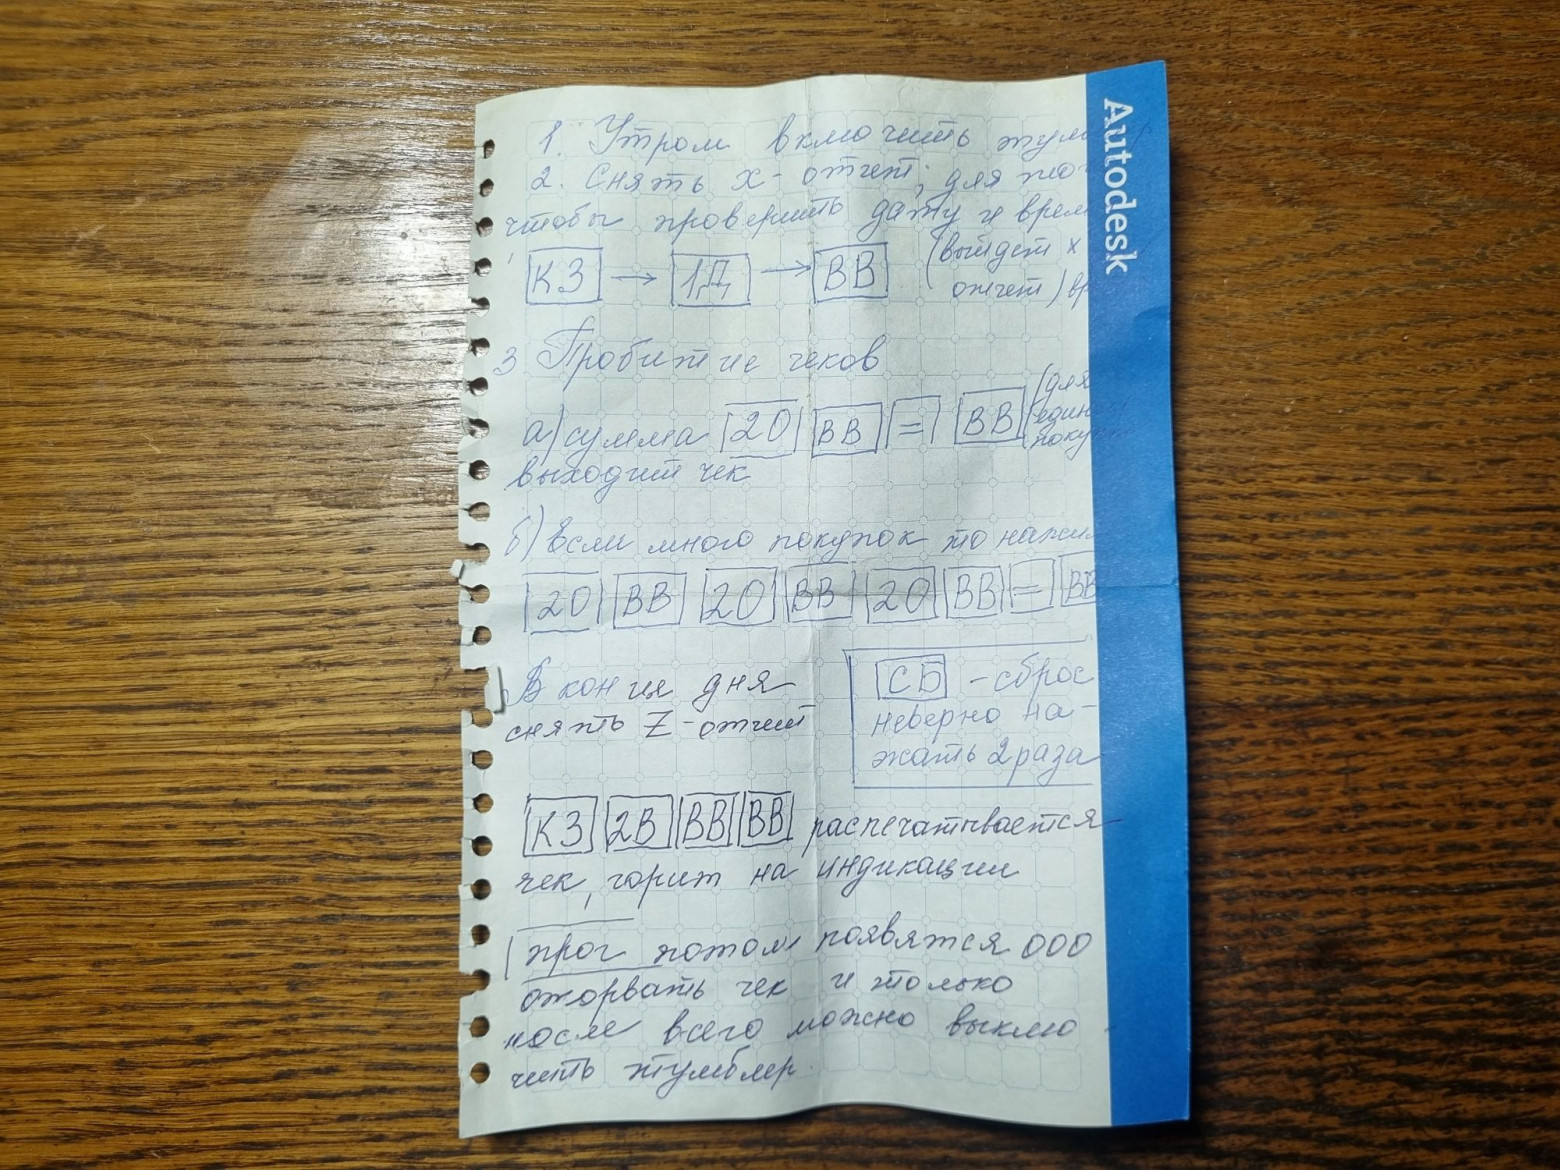 1. Утром включить тум
2. Снять х-отчет, для то
чтобы проверить дату и врем
КЗ → 1Д → ВВ (выйдет х
отчет)
3 Пробитие чеков
а) сумма 2О ВВ = ВВ (для
един
покуп
выходит чек
б) если много покупок то нажи
2О ВВ 2О ВВ 2О ВВ = ВВ
В конце дня
снять Z-отчет
СБ - сброс
неверно на-
жать 2 раза
КЗ 2В ВВ ВВ распечатывается
чек, горит на индикации
прог потом появятся 000
оторвать чек и только
после всего можно выклю
чить тумблер.
Autodesk